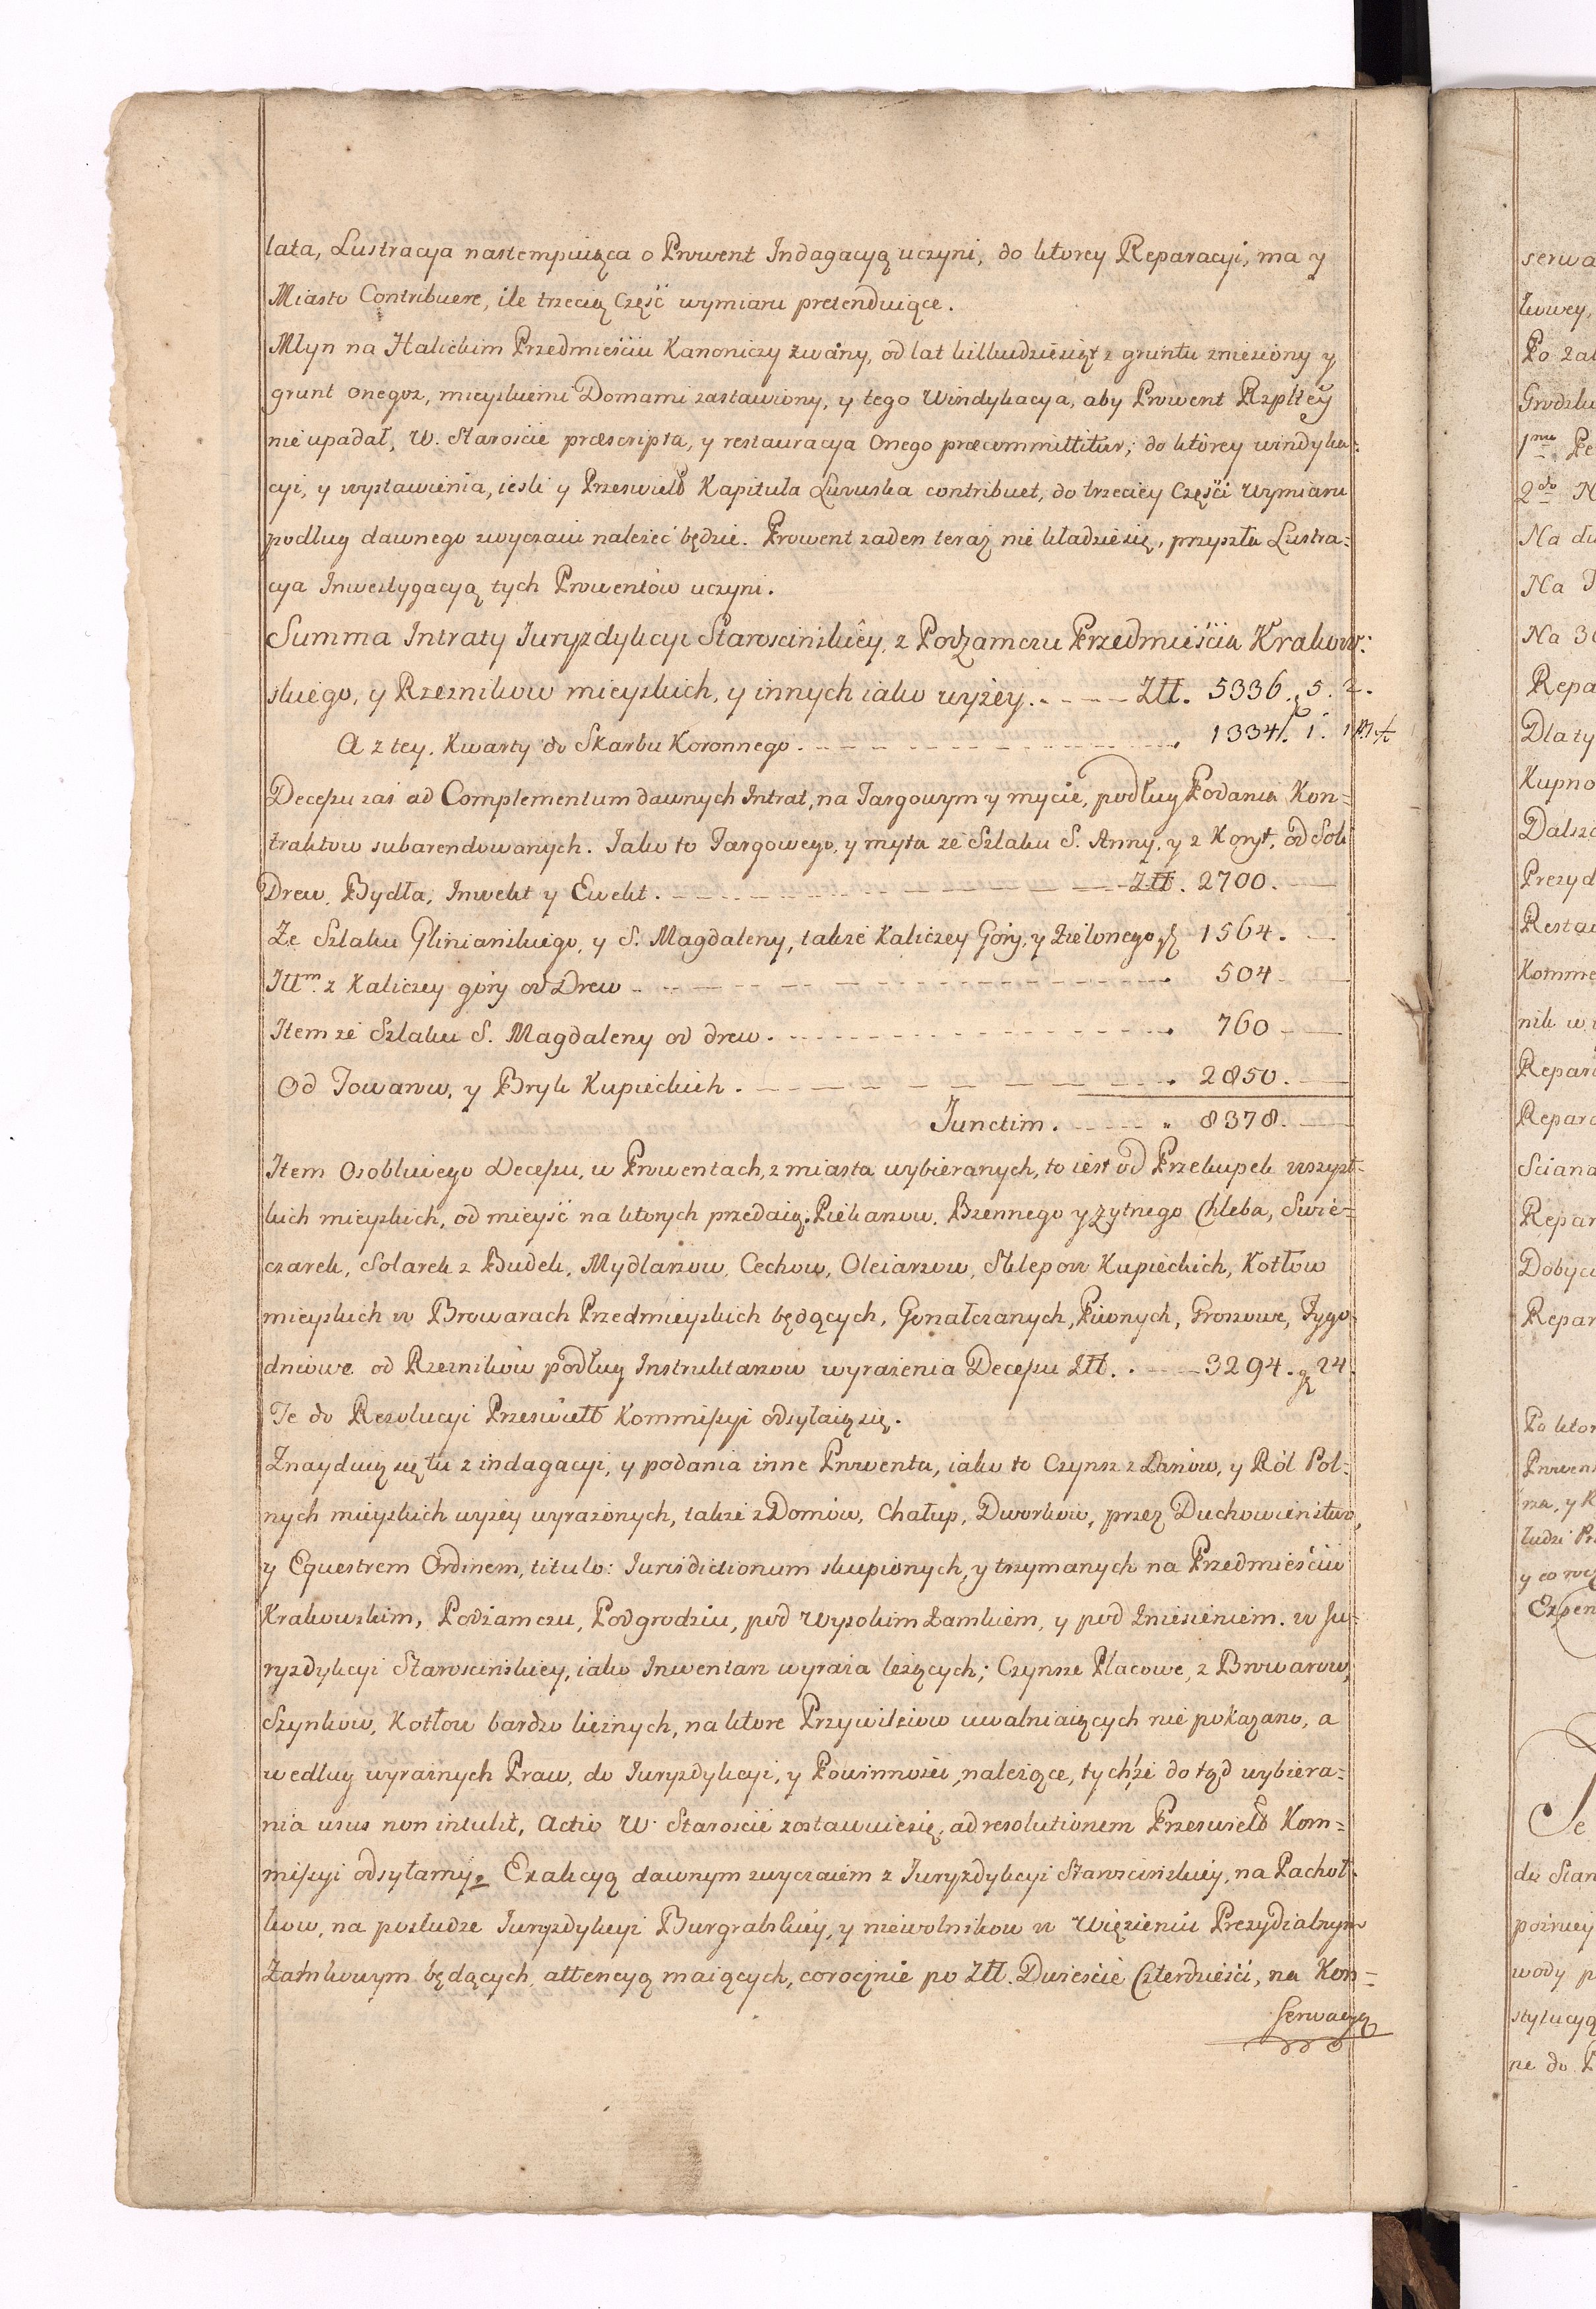 lata, Lustracya nastempuiąca o Prowent Indagacyą uczyni, do ktorey Reparacyi, ma y
Miasto Contribuere, ile trzecią Część wymiaru pretenduiące.
Młyn na Halickim Przedmieściu Kanoniczy zwany, od lat kilkudziesiąt z gruntu zniesiony y
grunt onegoz, mieyskiemi Domami zastawiony, y tego Windykacya, aby Prowent Rzpltey
nie upadał, W. Staroscie præscripta, y restauracya Onego præcommittitur; do ktorey windyka-
cyi, y wystawienia, iesli y Przeswietð Kapituła Lwuska contribuet, do trzeciey Części Wymiaru
podług dawnego zwyczaiu nalezeć będzie. Prowent zaden teraz nie kładzie się, przyszła Lustra-
cya Inwestygacyą tych Prowentów uczyni.
Summa Intraty Juryzdykcyi Staroscińskîey, z Podzamczu Przedmieścia Krakow:
skiego, y Rzeznikow mieyskich, y innych iako wyzey. Złł. 5336. g 5. 2.
A z tey. Kwarty do Skarbu Koronnego. 1334. 1.
Decesu zas ad Complementum dawnych Intrat, na Targowym y mycie, podług Podania Kon-
traktow subarendowanych. Iako to Targowego, y myta ze Szlaku S. Anny, y z Konst. od Soli
Drew, Bydła, Inwekt y Ewekt. Złł. 2700.
Ze Szlaku Glinianskiego, y S. Magdaleny, takze Kaliczey Góry, y Zielonego 1564.
Ittm. z Kaliczey góry od Drew 504
Item ze Szlaku S. Magdaleny od drew. 760
Od Towarow, y Bryk Kupieckich. 2850.
Junctim. 8378.
Item Osobliwego Decesu, w Prowentach, z miasta wybieranych, to iest od Przekupek wszyst-
kich mieyskich, od mieysć na ktorych przedaią. Piekarzow, Bzennego y zytnego Chleba, Swie-
czarek, Solarek z Budek, Mydlarzow, Cechow, Oleiarzow, Sklepow Kupieckich, Kotłow
mieyskich w Browarach Przedmieyskich będących, Gorzałczanych, Piwnych, Groszowe, Tygo-
dniowe od Rzeznikow podług Instruktarzow wyrazenia Decesu Złł. 3294. g 24.
Te do Rezolucyi Przeswietð Kommissyi odsyłaią się.
Znayduią się tu z indagacyi, y podania inne Prowenta, iako to Czynsz z Łanów, y Ról Pol-
nych mieyskich wyzey wyrazonych, takze z Domów, Chałup, Dworkow, przez Duchowienstwo,
y Equestrem Ordinem, titulo: Jurisdictionum skupionych, y trzymanych na Przedmieściu
Krakowskim, Podzamczu, Podgrodziu, pod Wysokim Zamkiem, y pod Zniesieniem. w Ju-
ryzdykcyi Staroscińskiey, iako Inwentarz wyraza lezących; Czynsze Placowe, z Browarow,
Szynkow, Kotłow bardzo licznych, na ktore Przywileiow uwalniaiących nie pokazano, a
według wyraznych Praw, do Juryzdykcyi, y Powinnosci nalezące, tychże do tąd wybiera-
nia usus non intulit, Actio W. Staroscie zostawuie się, ad resolutionem Przeswietð Kom-
missyi odsyłamy. Exakcyą dawnym zwyczaiem z Juryzdykcyi Staroscińskiey, na Pachoł-
kow, na posłudze Juryzdykcyi Burgrabskiey, y niewolnikow w Więzieniu Prezydialnym
Zamkowym będących, attencyą maiących, corocznie po Złł. Dwiescie Czterdzieści, na Kon-
serwacyą